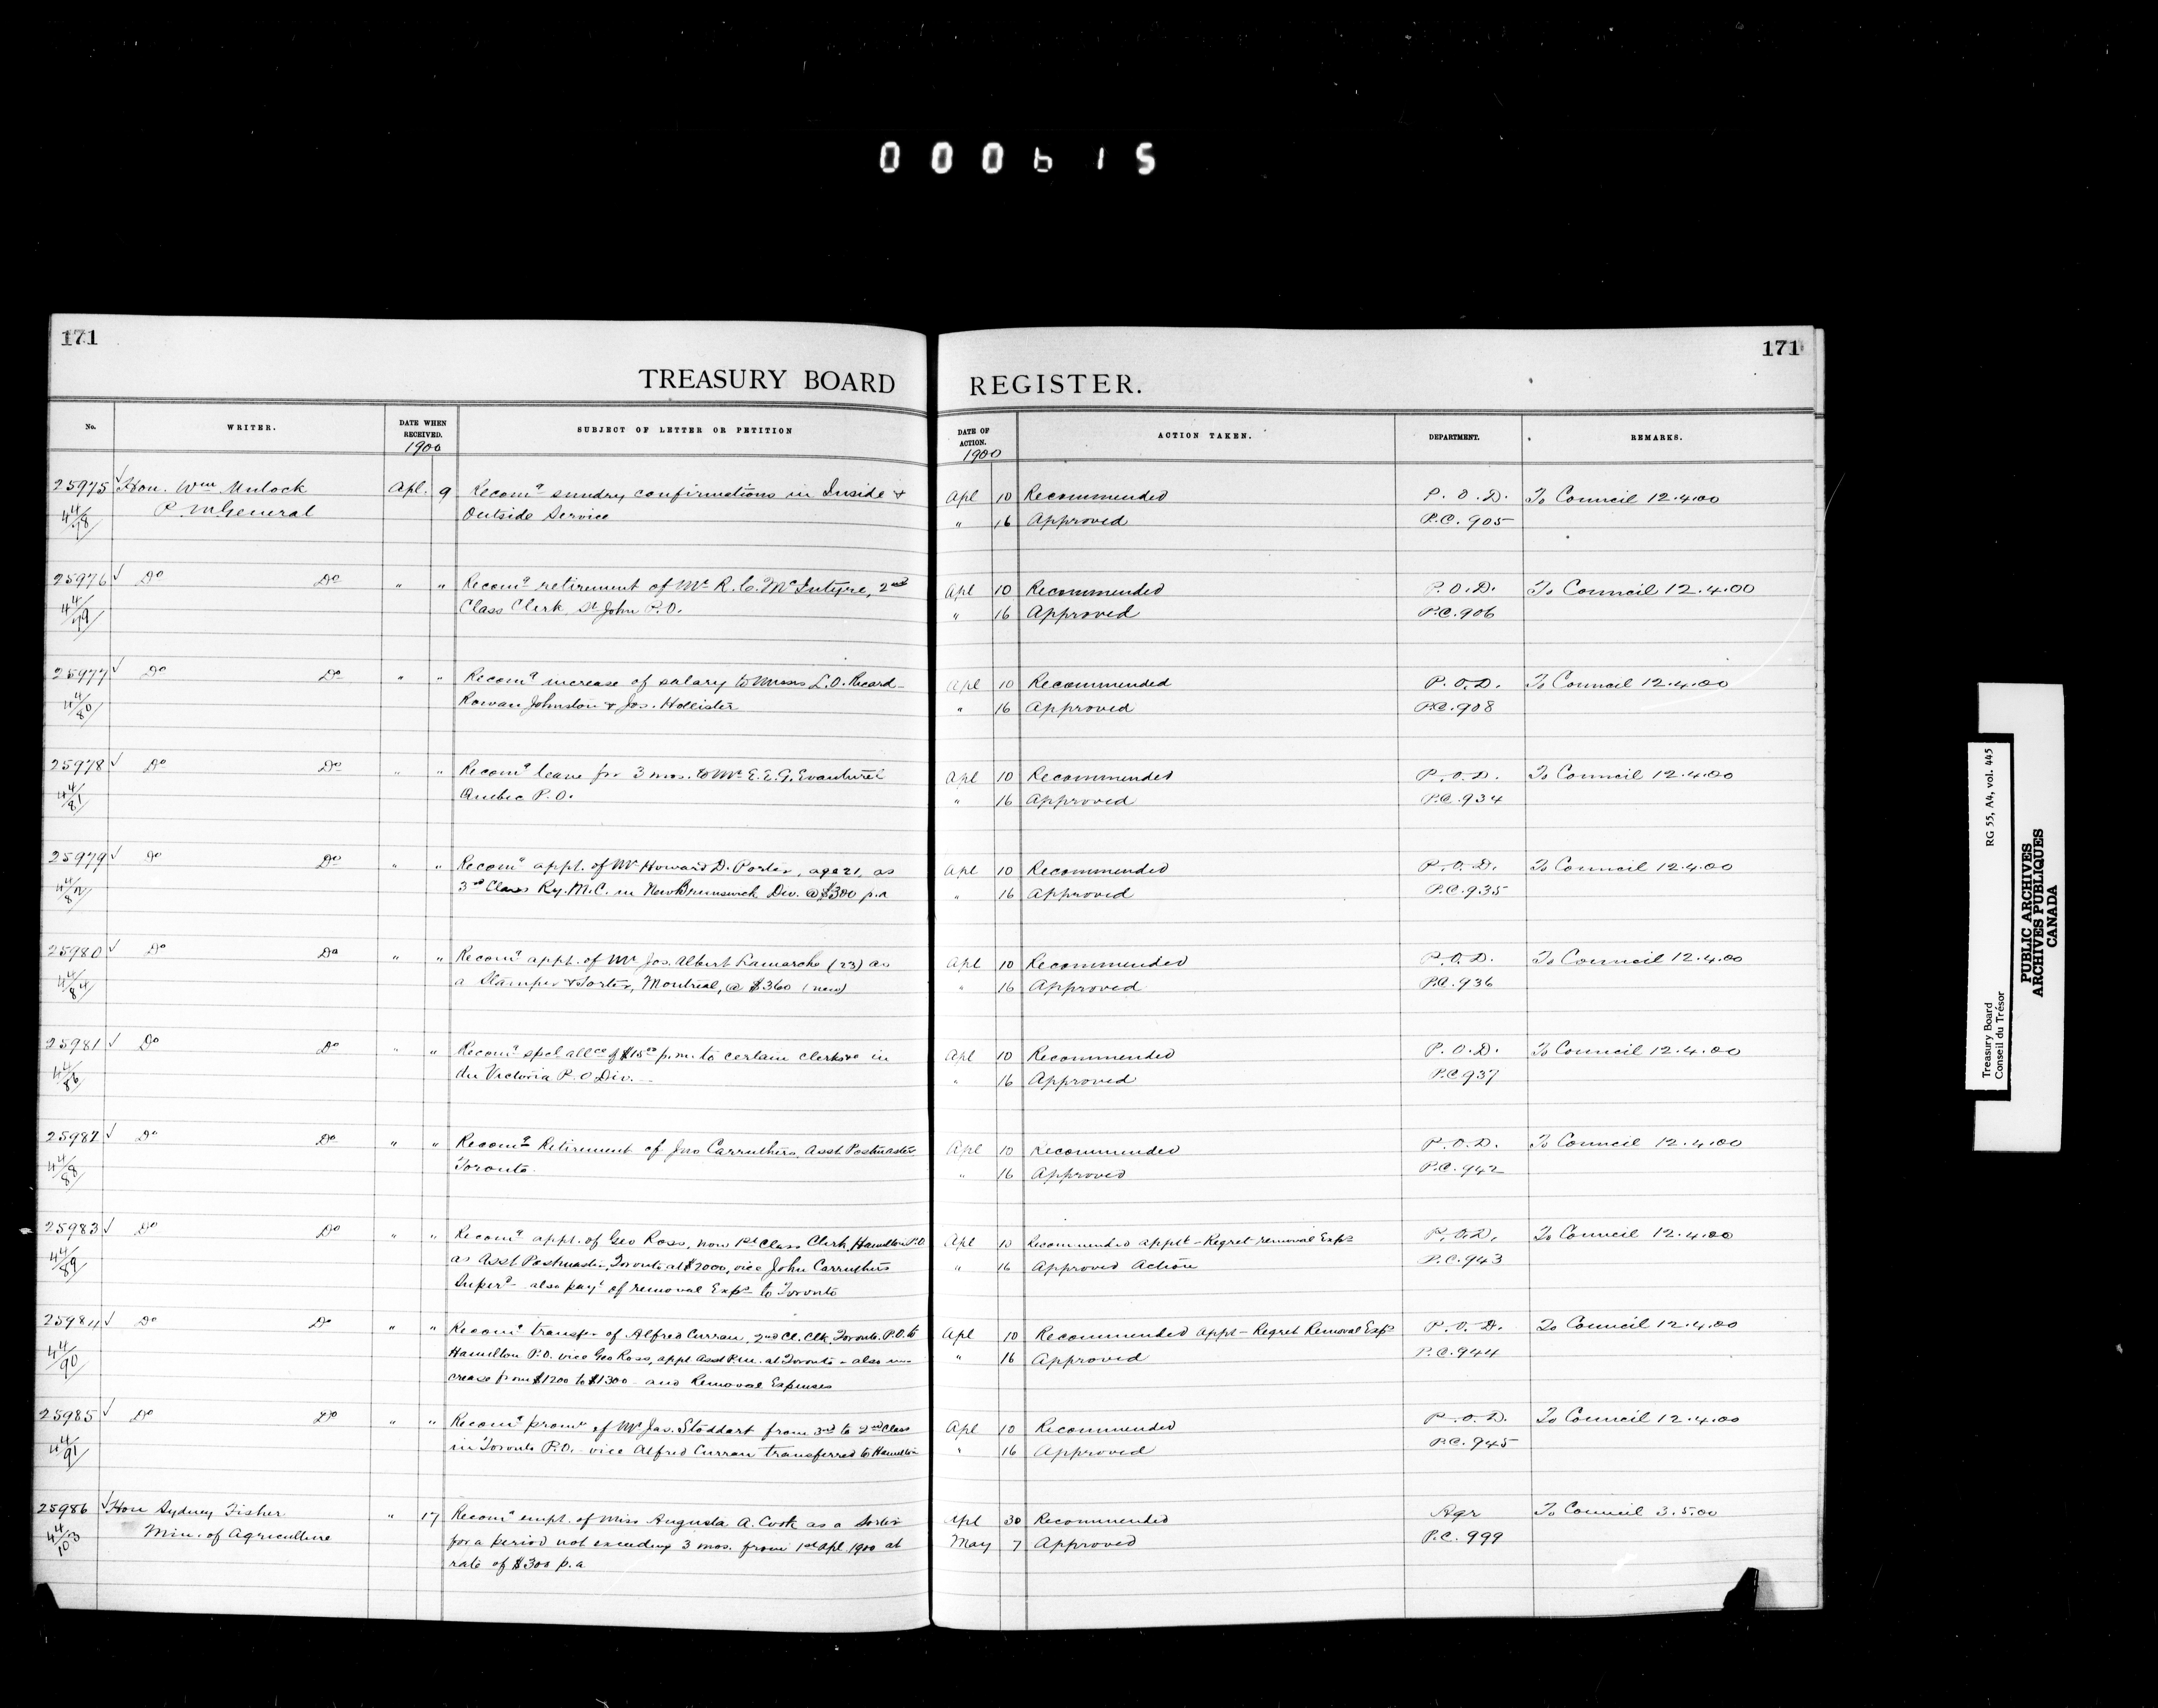 000615
171
171
TREASURY BOARD REGISTER.
No. WRITER. DATE WHEN RECEIVED. 1900 SUBJECT OF LETTER OR PETITION DATE OF ACTION. 1900 ACTION TAKEN. DEPARTMENT. REMARKS.
25975 Hon. Wm Mulock Apl. 9 Recomg sundry confirmations in Inside & Apl 10 Recommended P.O.D. To Council 12.4.00
44/78 P.M General Outside Service " 16 Approved P.C. 905
25976 Do Do " " Recomg retirement of Mr R. C. McIntyre, 2nd Apl 10 Recommended P.O.D. To Council 12.4.00
44/79 Class Clerk, St John P.O. " 16 Approved P.C. 906
25977 Do Do " " Recomg increase of salary to Messrs L.O. Ricard Apl 10 Recommended P.O.D. To Council 12.4.00
44/80 Rowan Johnston & Jos. Hollister " 16 Approved P.C. 908
25978 Do Do " " Recomg leave for 3 mos. to Mr E.E.G. Evanturel Apl 10 Recommended P.O.D. To Council 12.4.00
44/81 Quebec P.O. " 16 Approved P.C. 934
25979 Do Do " " Recomg appt. of Mr Howard D. Porter, age 21, as Apl 10 Recommended P.O.D. To Council 12.4.00
44/82 3rd Class Ry. M.C. in New Brunswick Div. @ $300 p.a " 16 Approved P.C. 935
25980 Do Do " " Recomg appt. of Mr Jos. Albert Lamarche (23) as Apl 10 Recommended P.O.D. To Council 12.4.00
44/84 a Stamper & Sorter, Montreal, @ $360 (new) " 16 Approved P.C. 936
25981 Do Do " " Recomg spcl allce of $15 00 p.m. to certain clerks in Apl 10 Recommended P.O.D. To Council 12.4.00
44/86 the Victoria P.O Div. " 16 Approved P.C 937
25982 Do Do " " Recomg Retirement of Jno Carruthers, Asst Postmaster Apl 10 Recommended P.O.D. To Council 12.4.00
44/88 Toronto. " 16 Approved P.C. 942
25983 Do Do " " Recomg appt. of Geo Ross, now 1st Class Clerk, Hamilton P.O Apl 10 Recommended appt - Regret removal Exps P.O.D. To Council 12.4.00
44/89 as Asst Postmaster, Toronto at $2000, vice John Carruthers " 16 Approved Action P.C. 943
Superd - also payt of removal Exps to Toronto
25984 Do Do " " Recomg transfer of Alfred Curran, 2nd Cl. Clk, Toronto P.O. to Apl 10 Recommended Appt - Regret Removal Exps P.O.D. To Council 12.4.00
44/90 Hamilton P.O. vice Geo Ross, appt Asst P.M. at Toronto - also in- " 16 Approved P.C. 944
crease from $1200 to $1300 - and Removal Expenses
25985 Do Do " " Recomg promn of Mr Jas. Stoddart from 3rd to 2nd Class Apl 10 Recommended P.O.D. To Council 12.4.00
44/91 in Toronto P.O. vice Alfred Curran transferred to Hamilton " 16 Approved P.C. 945
25986 Hon Sydney Fisher " 17 Recomg empt. of Miss Augusta A. Cook as a sorter Apl 30 Recommended Agr To Council 3.5.00
44/103 Min. of Agriculture for a period not exceeding 3 mos. from 1st Apl 1900 at May 7 Approved P.C. 999
rate of $300 p.a
Treasury Board RG 55, A4, vol. 445
Conseil du Trésor
PUBLIC ARCHIVES
ARCHIVES PUBLIQUES
CANADA